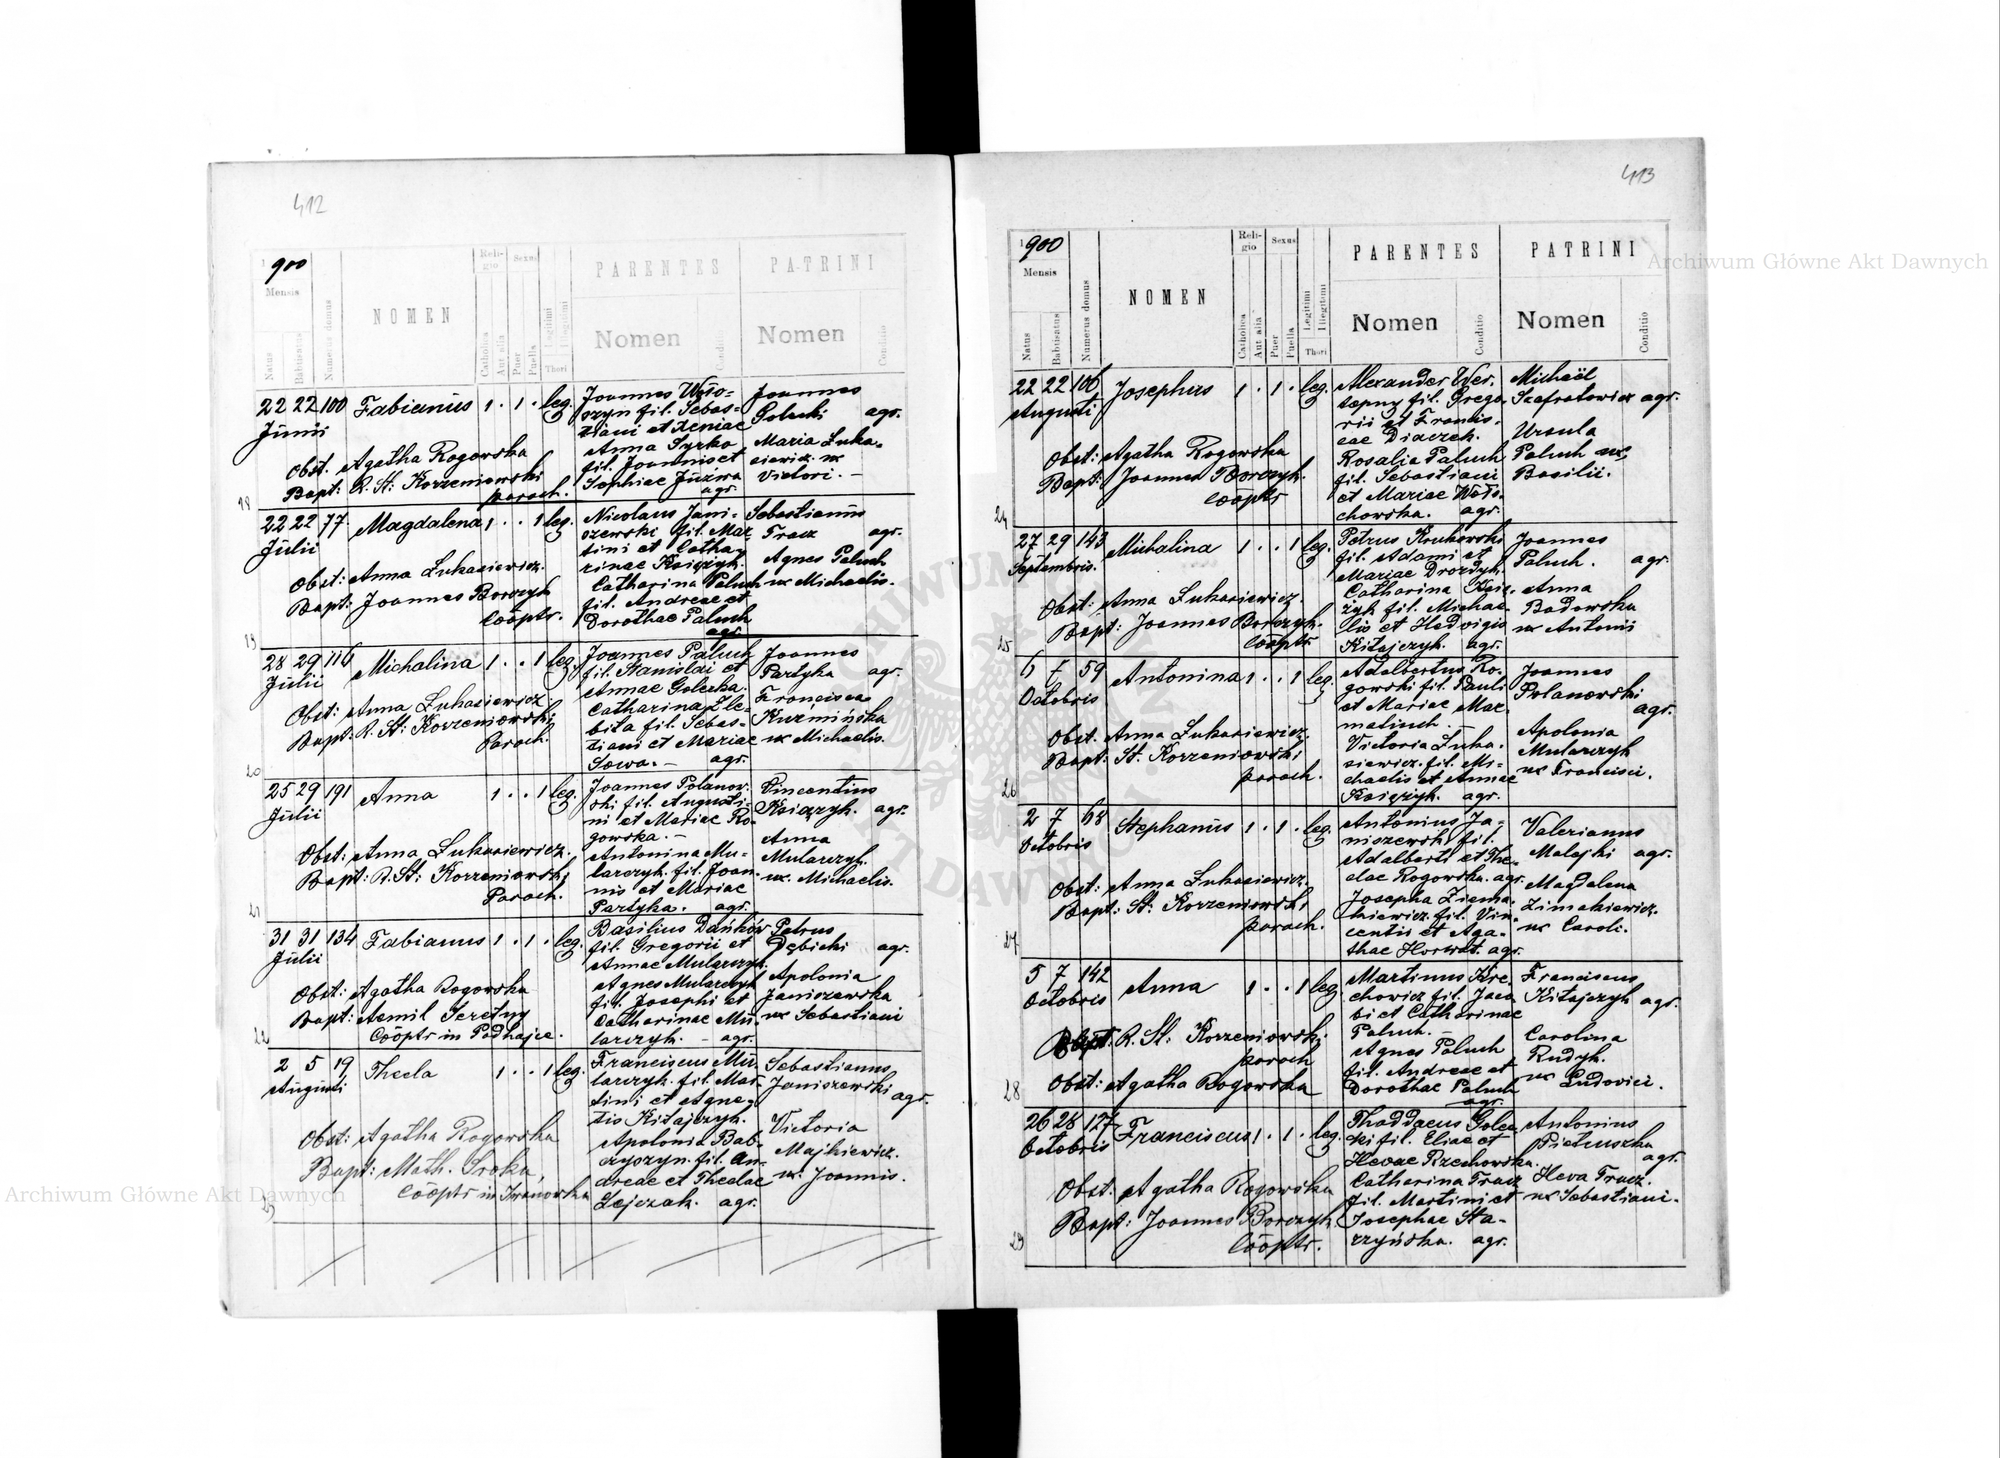 412
1900
Mensis
Natus
Babtisatus
Numerus domus
NOMEN
Reli-
gio
Catholica
Aut alia
Sexus
Puer
Puella
Legitimi
Illegitimi
Thori
PARENTES
Nomen
Conditio
PATRINI
Nomen
Conditio
22 22 100 Fabianus 1 . 1 . leg.
Junii
Obst. Agatha Rogowska
Bapt: R. St: Korzeniowski
paroch.
Joannes Woło-
szyn fil. Sebas-
tiani et Xeniae
Anna Syrko
fil. Joannis et
Sophiae Juzwa
agr.
Joannes
Golecki agr.
Maria Luka-
siewicz ux
Victori. —
18
22 22 77 Magdalena 1 . . 1 leg.
Julii
Obst: Anna Lukasiewicz.
Bapt: Joannes Borczyk
Cööptr.
Nicolaus Jani-
szewski fil. Mar-
tini et Catha-
rinae Księżyk.
Catharina Paluch
fil. Andreae et
Dorothae Paluch
agr.
Sebastianus
Tracz agr.
Agnes Paluch
ux Michaelis.
19
28 29 116 Michalina 1 . . 1 leg.
Julii
Obst: Anna Lukasiewicz
Bapt: R. St: Korzeniowski
Paroch.
Joannes Paluch
fil. Stanislai et
Annae Golecka.
Catharina Żle-
bita fil. Sebas-
tiani et Mariae
Sowa. — agr.
Joannes
Partyka agr.
Francisca
Kuzmińska
ux Michaelis.
20
25 29 191 Anna 1 . . 1 leg.
Julii
Obst: Anna Lukasiewicz.
Bapt: R. St: Korzeniowski
Paroch.
Joannes Polanow-
ski fil. Augusti-
ni et Mariae Ro-
gowska. —
Antonina Mu-
larczyk. fil. Joan-
nis et Mariae
Partyka. agr.
Vincentius
Księżyk. agr.
Anna
Mularczyk.
ux. Michaelis.
21
31 31 134 Fabianus 1 . 1 . leg.
Julii
Obst: Agatha Rogowska
Bapt: Aemil Seretny
Cööptr in Podhajce.
Basilius Dańków
fil. Gregorii et
Annae Mularczyk.
Agnes Mularczyk
fil. Josephi et
Catharinae Mu-
larczyk. — agr.
Petrus
Dębicki agr.
Apolonia
Janiszewska
ux Sebastiani
22
2 5 19 Thecla 1 . . 1 leg.
Augusti
Obst: Agatha Rogowska
Bapt: Math. Sroka,
Cööptr in Iwanówka
Franciscus Mu-
larczyk. fil. Mar-
tini et Agne-
tis Kitajczyk.
Apolonia Bab-
czyszyn. fil. An-
dreae et Theclae
Lejczak. agr.
Sebastianus
Janiszewski agr.
Victoria
Majkiewicz.
ux. Joannis.
23
413
1900
Mensis
Natus
Babtisatus
Numerus domus
NOMEN
Reli-
gio
Catholica
Aut alia
Sexus
Puer
Puella
Legitimi
Illegitimi
Thori
PARENTES
Nomen
Conditio
PATRINI
Nomen
Conditio
22 22 106 Josephus 1 . 1 . leg.
Augusti
Obst: Agatha Rogowska
Bapt: Joannes Borczyk.
Cööptr
Alexander Wer-
tepny fil. Grego-
rii et Francis-
cae Diaczek.
Rosalia Paluch
fil. Sebastiani
et Mariae Woło-
chowska. agr.
Michaël
Szafratowicz agr.
Ursula
Paluch ux
Basilii.
24
27 29 143 Michalina 1 . . 1 leg.
Septembris.
Obst: Anna Lukasiewicz.
Bapt: Joannes Borczyk.
Cööptr
Petrus Krukowski
fil. Adami et
Mariae Drozdyk.
Catharina Księ-
żyk fil. Michae-
lis et Hedvigis
Kitajczyk. agr.
Joannes
Paluch. agr.
Anna
Badowska
ux Antonii
25
6 7 59 Antonina 1 . . 1 leg.
Octobris
Obst. Anna Lukasiewicz.
Bapt: St. Korzeniowski
paroch.
Adalbertus Ro-
gowski fil. Pauli
et Mariae Mar-
maliuch. —
Victoria Luka-
siewicz. fil. Mi-
chaelis et Annae
Księżyk. agr.
Joannes
Polanowski
agr.
Apolonia
Mularczyk
ux Francisci.
26
2 7 68 Stephanus 1 . 1 . leg.
Octobris
Obst: Anna Lukasiewicz.
Bapt: St: Korzeniowski
paroch.
Antonius Ja-
niszewski fil.
Adalberti et The-
clae Rogowska. agr.
Josepha Ziema-
kiewicz. fil. Vin-
centii et Aga-
thae Horwat. agr.
Valerianus
Malejki agr.
Magdalena
Zimakiewicz.
ux Caroli.
27
5 7 142 Anna 1 . . 1 leg
Octobris
Bapt: R. St: Korzeniowski
paroch
Obst: Agatha Rogowska
Martinus Kre-
chowicz fil. Jaco-
bi et Catharinae
Paluch. —
Agnes Paluch
fil. Andreae et
Dorothae Paluch
agr.
Franciscus
Kitajczyk agr.
Carolina
Rudyk.
ux Ludovici.
28
26 28 127 Franciscus 1 . 1 . leg.
Octobris
Obst. Agatha Rogowska
Bapt: Joannes Borczyk.
Cööptr.
Thaddaeus Golec-
ki fil. Eliae et
Hevae Rzechowska.
Catharina Tracz
fil. Martini et
Josephae Sta-
rzyńska. agr.
Antonius
Pietruszka
agr.
Heva Tracz.
ux Sebastiani.
29
Archiwum Główne Akt Dawnych
Archiwum Główne Akt Dawnych